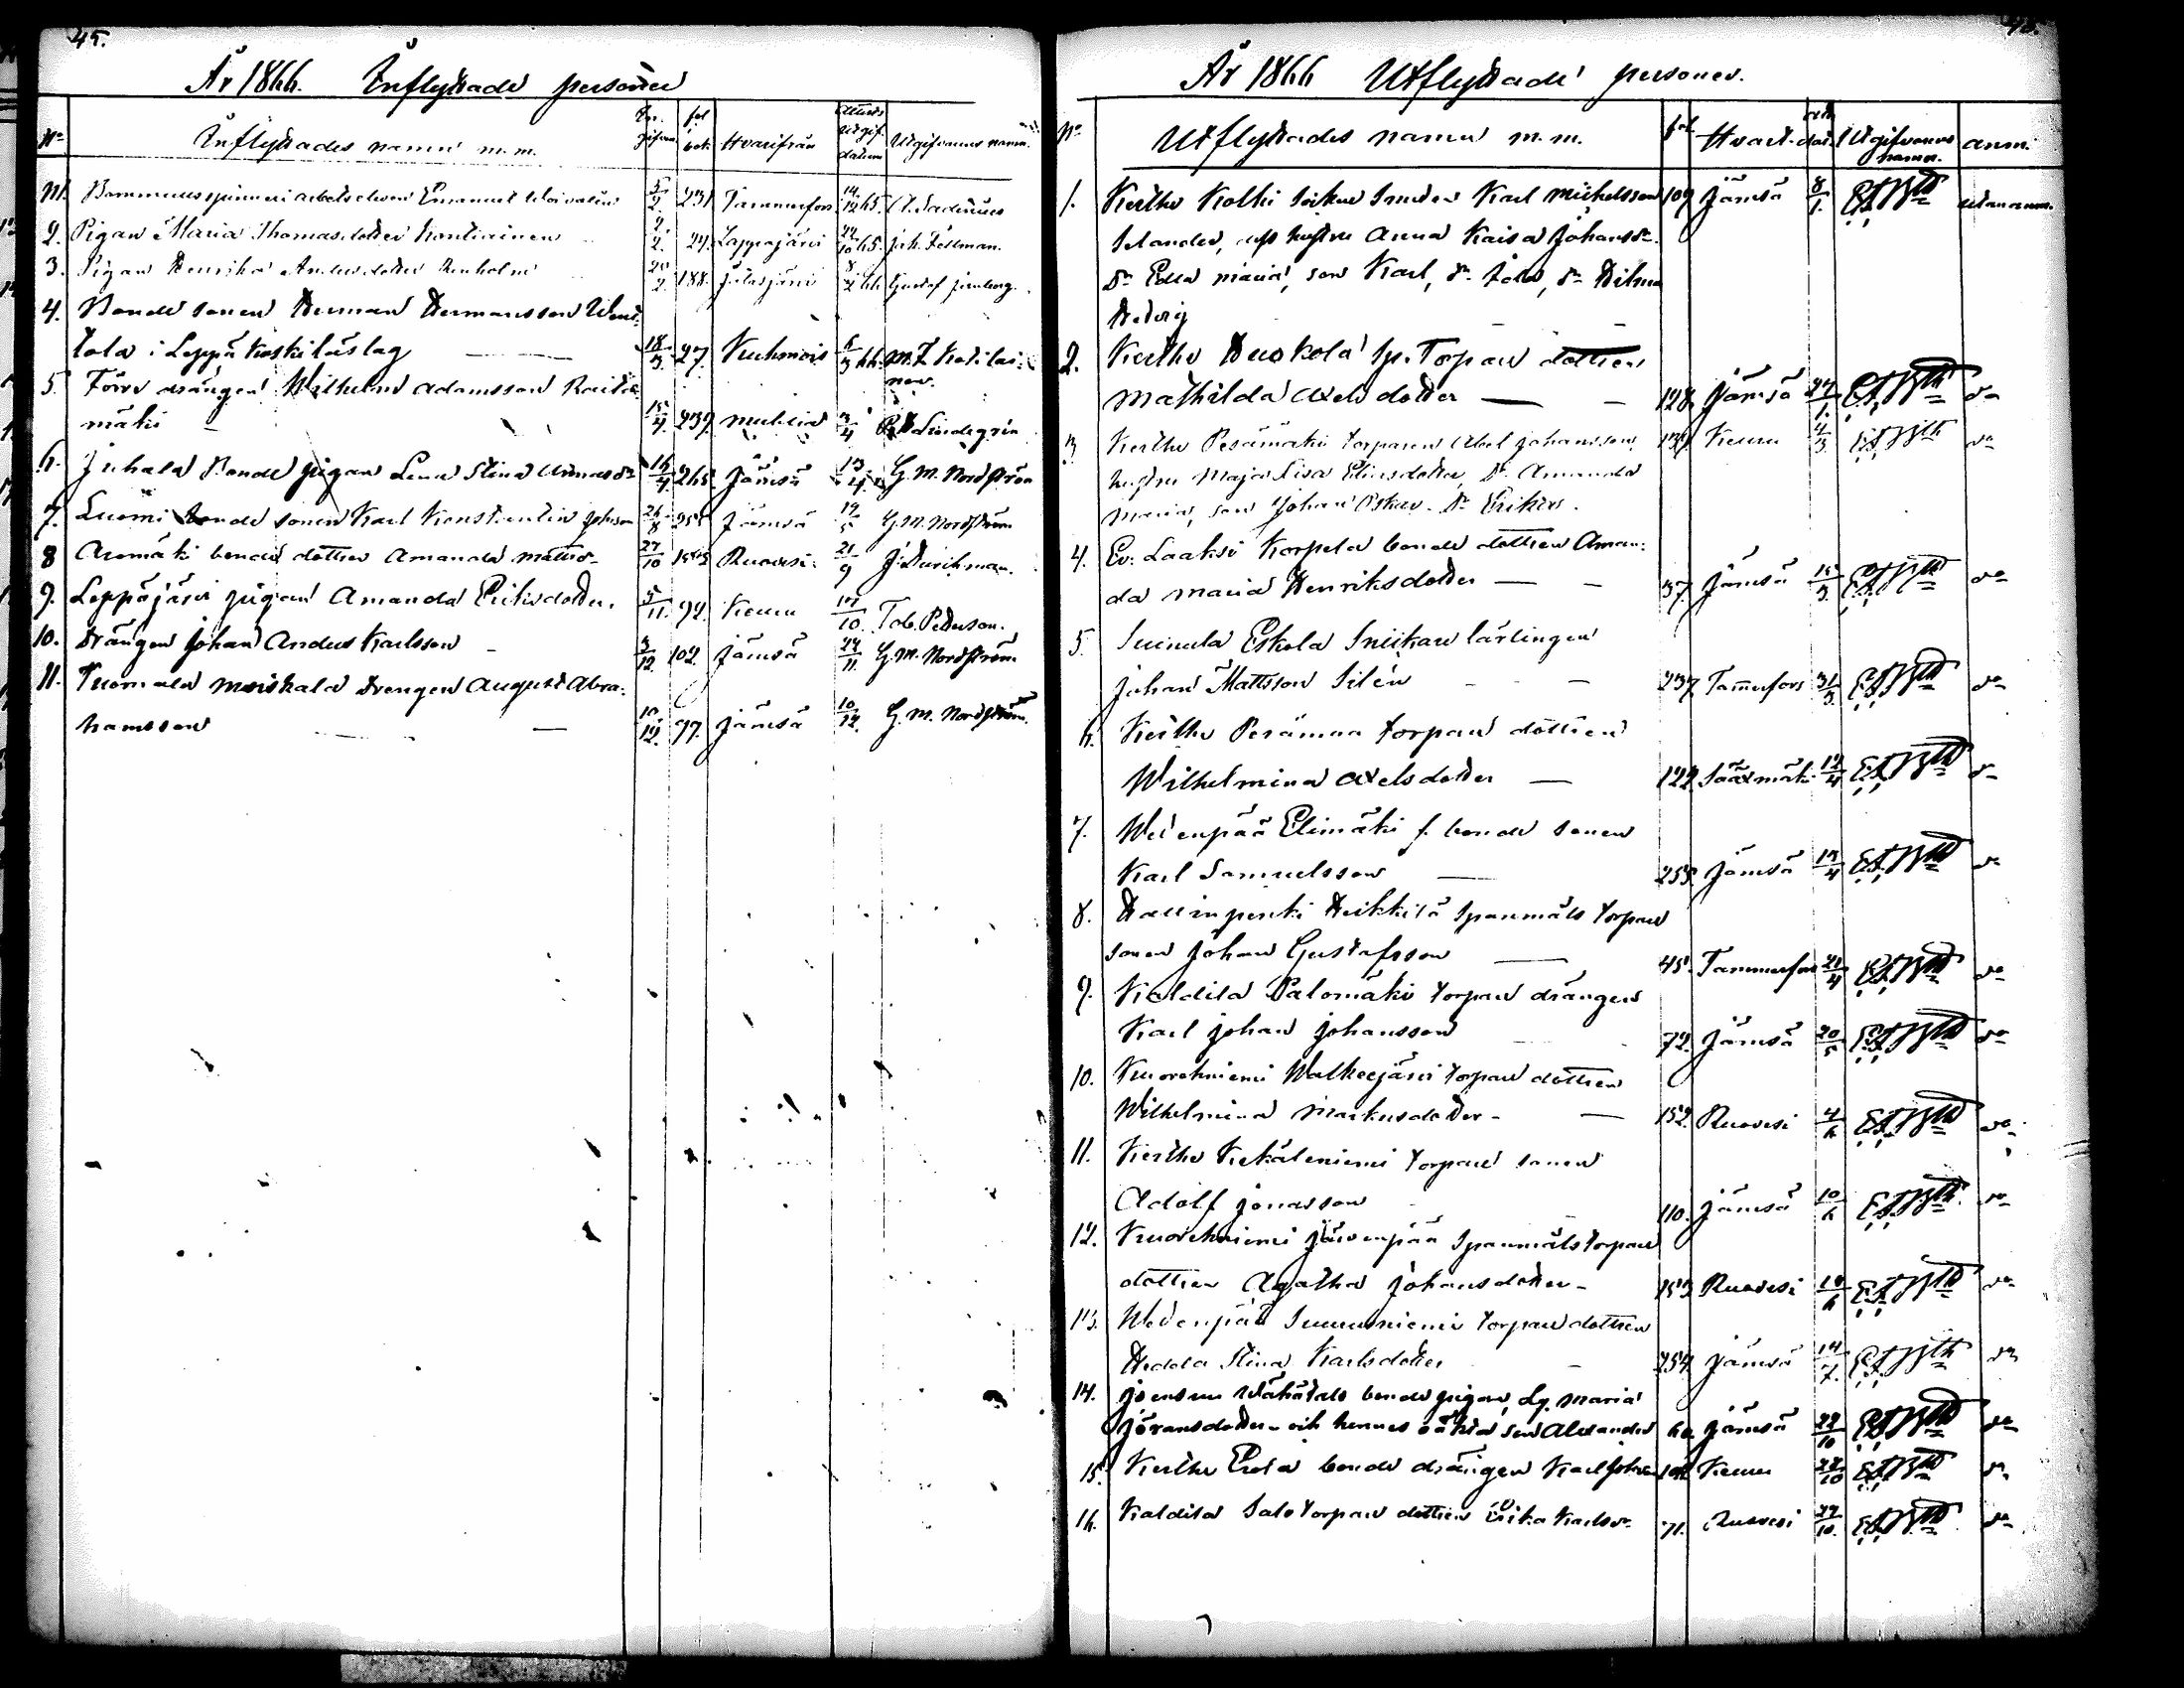 45.
År 1866. Inflyttade personer
No Inflyttades namn m.m. fol bok Hvarifrån Attests utgif. datum Utgifvarens namn.
N1. Bommullsspinneri arbetskarlen Emanuel 5/2. 231 Tammerfors 14/12 65.
2. Pigan Maria Thomasdotter Kontiainen 9/2. 24. Lappajärvi 22/10 65. Joh. Fellman.
3. Pigan Henrika Andersdotter 188. Jalasjärvi 8/2 66 Gustaf
4. Bonde sonen Herman Hermansson
tola i Leppäkoski låslag 18/3. 27. Kuhmois 6/3 66. M. Z.
5. Torpar drängen Wilhelm Adamsson
mäki 15/4. 239. Multia 3/4 Lindegrén
6. Juhala Bonde pigan Lena Stina 16/4. 265 Jämsä 13/4. G. M. Nordström
7. Luomi Bonde sonen Karl Konstantin Johsson 26/8 255 Jämsä 19/5 G. M. Nordström
8 Aromäki bonde dottren Amanda Mattsdr 27/10 Ruovesi 21/9
9. Leppäjärvi pigan Amanda Eriksdotter. 5/11. 92. Keuru 17/10. Tob. Petterson.
10. Drängen Johan Anders Karlsson 3/12. 102. Jämsä 24/11. G. M. Nordström
11. Tuomala Moiskala Drengen August Abra-
hamsson 10/12. 97. Jämsä 10/12. G. M. Nordström.
År 1866 Utflyttade personer.
No Utflyttades namn m.m. fol. Hvart. dat. Utgifvarens namn. anm.
1. Kertte Kolhi Karl Michelsson 109 Jämsä 8/1. utan anm.
Selander, hustru Anna Kaisa Johansdr.
Dr Edla Maria, son Karl, dr Ida, dr Hilma
Hedvig
2. Kertte Huskola Sp. Torpare dottren
Mathilda Axelsdotter 128. Jämsä 27/1. do
3 Kertte Perämäki torparen Abel Johansson, Keuru 4/3. do
hustru Maja Lisa Eliusdotter, Dr Amanda
Maria, son Johan Oskar. Dr Erika.
4. Ev: Laaksi Korpela bonde dottren Aman-
da Maria Henriksdotter 37. Jämsä 15/3. do
5. Suinula Eskola Snickare lärlingen
Johan Mattsson Silén 237. Tammerfors 31/3. do
6. Kertte Perämaa torpare dottren
Wilhelmina Axelsdotter 122. Sääxmäki 12/4 do
7. Wedenpää Elimäki f. bonde sonen
Karl Samuelsson 255. Jämsä 17/4 do
8. Hallinpenki Heikkilä Spanmåls torpare
sonen Johan Gustafsson 45. Tammerfors 21/4 do
9. Kaldila Palomäki torpare drängen
Karl Johan Johansson 72. Jämsä 20/5 do
10. Kuorehniemi Walkeejärvi torpare dottren
Wilhelmina Markusdotter 152. Ruovesi 4/6 do
11. Kertte Kekäleniemi torpare sonen
Adolf Jonasson 110. Jämsä 10/6 do
12. Kuorehniemi Järvenpää Spanmåls torpare
dottren Agatha Johansdotter 153. Ruovesi 18/6 do
13. Wedenpää torpare dottren
Hedda Stina Karlsdotter 254. Jämsä 14/7. do
14. Joensuu Wähätalo bonde pigan, Lg. Maria
Göransdotter och hennes oäkta son Alexander 60 Jämsä 22/10 do
15. Kertte Erola bonde drängen Karl Johan Keuru 22/10 do
16. Kaldila Salo torpare dottren Erika Karlsdr 71. Ruovesi 27/10. do